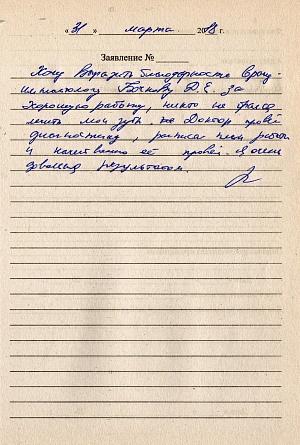 « 31 » марта 2018 г.
Заявление №
Хочу Выразить благодарность Врачу-
имплантологу Д.Е. за
хорошую работу, никто не брался
лечить мои зубы, но Доктор провёл
диагностику, расписал план работ
и качественно её провёл. Я очень
довольна результатом.